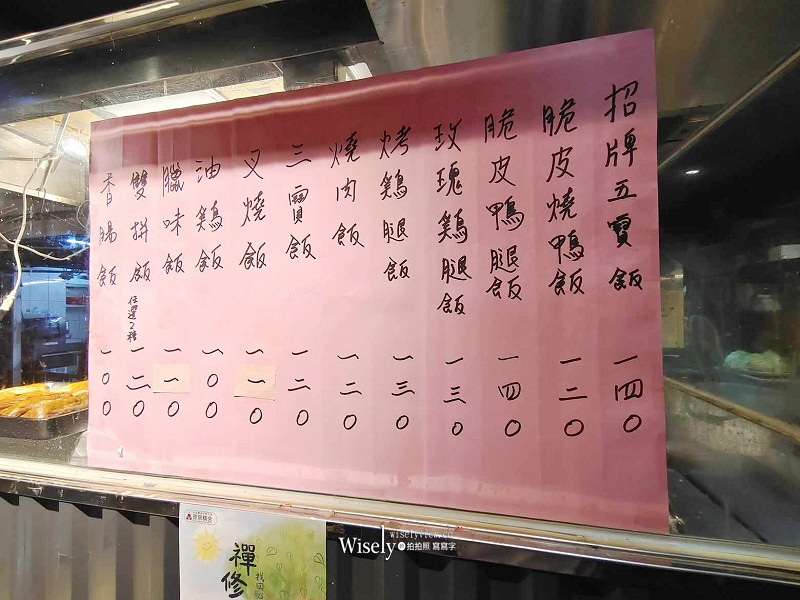 招牌五寶飯 一四〇
脆皮燒鴨飯 一二〇
脆皮鴨腿飯 一四〇
玫瑰鷄腿飯 一三〇
烤鷄腿飯 一三〇
燒肉飯 一二〇
三寶飯 一二〇
叉燒飯 一一〇
油鷄飯 一〇〇
臘味飯 一一〇
雙拼飯 任選2種 一二〇
香腸飯 一〇〇
禪修
Wisely 拍拍照 寫寫字